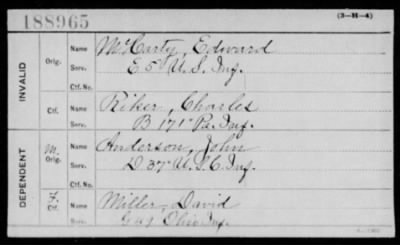 188965
(3-H-4)
INVALID
Orig.
Name
McCarty, Edward
Serv.
E 5" U.S. Inf.
Ctf. No.
Ctf.
Name
Riker, Charles
Serv.
B 171" Pa. Inf.
DEPENDENT
M.
Orig.
Name
Anderson, John
Serv.
D. 37" U.S.C. Inf.
Ctf. No.
F.
Ctf.
Name
Miller, David
Serv.
G 49 Ohio Inf.